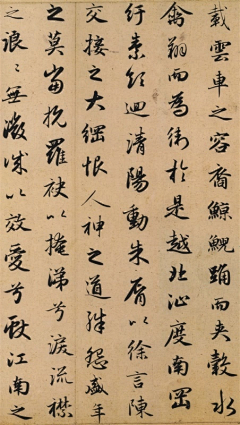 載雲車之容裔鯨鯢踊而夾轂水
禽翔而為衛於是越北沚度南岡
紆素領迴清陽動朱脣以徐言陳
交接之大綱恨人神之道殊怨盛年
之莫當抗羅袂以掩涕兮淚流襟
之浪〻無微情以效愛兮獻江南之